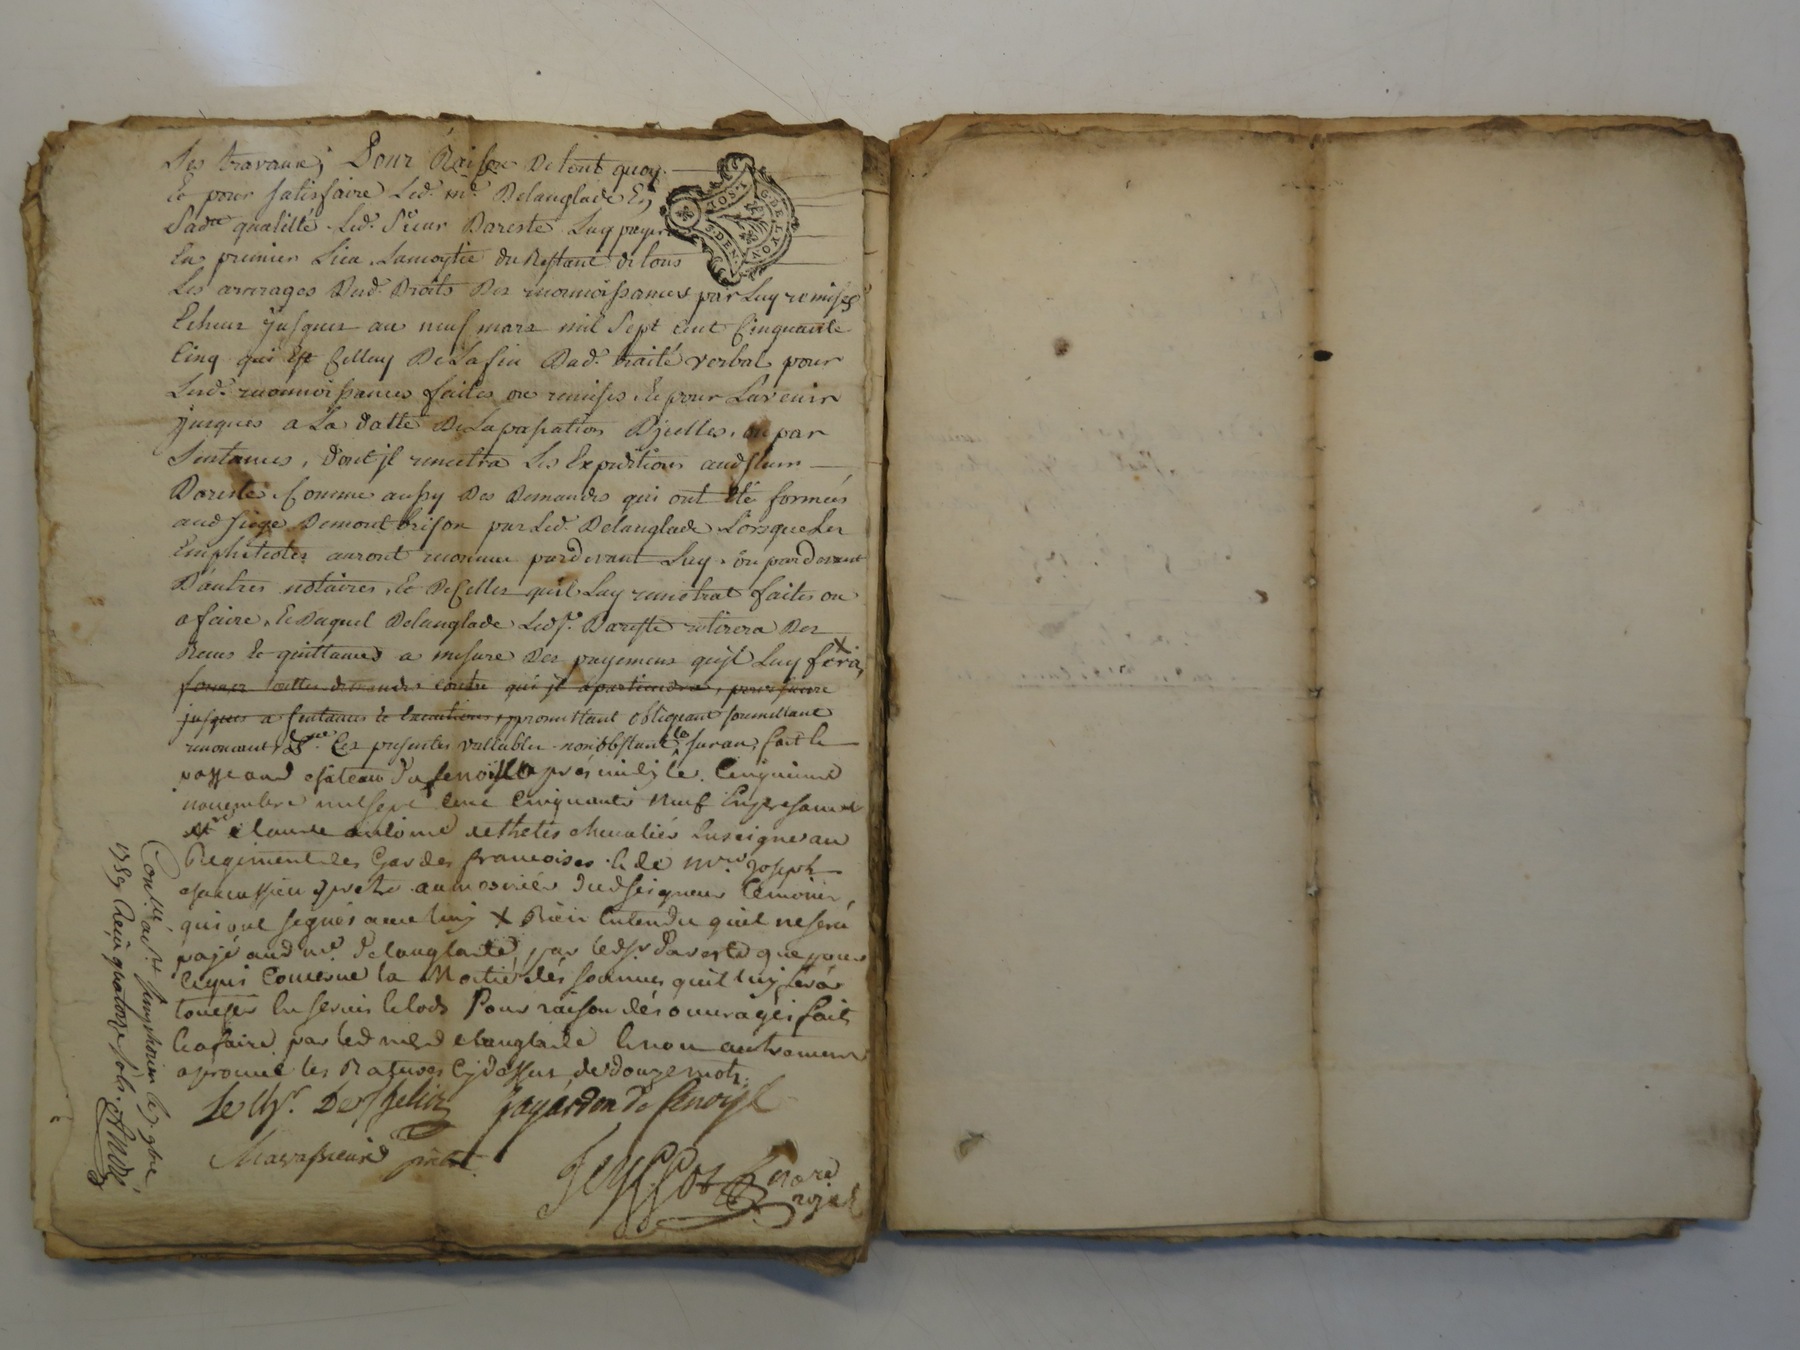 Ses travaux; Pour Raison De tout quoy
Et pour satisfaire Led. me. Delanglade En
Sadte qualitté Led. Sieur Dareste Luy payera
En premier Lieu Lamoytie du Restant de tous
Les arrerages Dud. Droits Des reconnoissances par Luy remises
Echeus Jusques au neuf mars mil Sept cent Cinquante
Cinq qui Est Celluy De La fin Dud. traité verbal pour
Lesd. reconnoissances faites ou remises, Et pour Lavenir
Jusques a La datte De La passation D'jcelles, ou par
Sentances, dont jl remettra Les Expeditions audsieur
Dareste, Comme aussy Des Demandes qui ont été formées
aud siége Demontbrison par Led. Delanglade Lorsque Les
Emphiteotes auront reconnu pardevant Luy, ou pardevant
D'autres notaires, Et De Celles quil Luy remettrat faites ou
a faire, Et Duquel Delanglade Led sr. Dareste retirera Des
Recus Et quittances a mesure Des payemens qujl Luy fera, X
former cettes demandes contre qui jl apartiendra, poursuivre
jusques a sentances Et Executions, promettant obligeant soumettant
renonceant &ce. Ces presentes vallables nonobstant la suran, fait Et
passe aud chateau du fenoyl apres midy le Cinquieme
novembre mil sept cent Cinquante Neuf En presance
de claude antoine dethelis chevaliér Enseigne au
Regiment des Gardes francoises Et de mre Joseph
pretre aumosniér dudseigneur Temoins,
qui ont signés avec luy X Bien Entendu quil ne sera
payé aud me. Delanglade, par led sr. Dareste que pour
Ce qui Concerne la Moitié des sommes quil luy fera
toucher En servis Et lods Pour raison dés ouvragés faits
Et a faire par led me delanglade Et non autrement
aprouvé les Ratures Cydessus de douze mots.
Le chr. De thelis Gayardon De fenoyl
pretre
Nore
royal
Conlé à St. Simphorien le 7 9bre
1759 Reçu quatorze sols. André
GDELYON